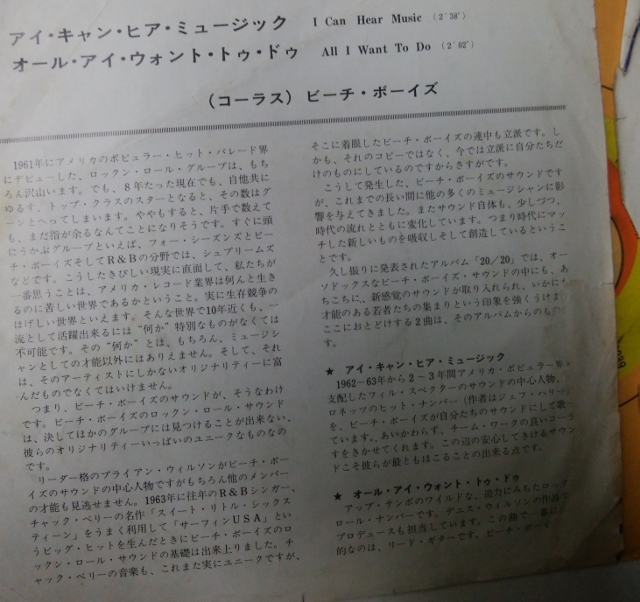 アイ・キャン・ヒア・ミュージック I Can Hear Music (2′38″)
オール・アイ・ウォント・トゥ・ドゥ All I Want To Do (2′02″)
(コーラス) ビーチ・ボーイズ
1961年にアメリカのポピュラー・ヒット・パレード界
にデビューした、ロックン・ロール・グループは、もち
ろん沢山います。でも、8年たった現在でも、自他共に
ゆるす、トップ・クラスのスターとなると、その数はグ
ーンとへってしまいます。ややもすると、片手で数えて
も、まだ指が余るなんてことになりそうです。すぐに頭
にうかぶグループといえば、フォー・シーズンズとビー
チ・ボーイズそしてR&Bの分野では、シュプリームズ
などです。こうしたきびしい現実に直面して、私たちが
一番思うことは、アメリカ・レコード業界は何んと生き
るのに苦しい世界であるかということ。実に生存競争の
はげしい世界といえます。そんな世界で10年近くも、一
流として活躍出来るには“何か”特別なものがなくては
不可能です。その“何か”とは、もちろん、ミュージシ
ャンとしての才能以外にはありえません。そして、それ
は、そのアーティストにしかないオリジナリティーに富
んだものでなくてはいけません。
つまり、ビーチ・ボーイズのサウンドが、そうなわけ
です。ビーチ・ボーイズのロックン・ロール・サウンド
は、決してほかのグループには見つけることが出来ない、
彼らのオリジナリティーいっぱいのユニークなものなの
です。
リーダー格のブライアン・ウィルソンがビーチ・ボー
イズのサウンドの中心人物ですがもちろん他のメンバー
の才能も見逃せません。1963年に往年のR&Bシンガー、
チャック・ベリーの名作「スイート・リトル・シックス
ティーン」をうまく利用して「サーフィンUSA」とい
うビッグ・ヒットを生んだときにビーチ・ボーイズのロ
ックン・ロール・サウンドの基礎は出来上りました。チ
ャック・ベリーの音楽も、これまた実にユニークですが、
そこに着眼したビーチ・ボーイズの連中も立派です。し
かも、それのコピーではなく、今では立派に自分たちだ
けのものにしているのですからさすがです。
こうして発生した、ビーチ・ボーイズのサウンドです
が、これまでの長い間に他の多くのミュージシャンに影
響を与えてきました。またサウンド自体も、少しづつ、
時代の流れとともに変化しています。つまり時代にマッ
チした新しいものを吸収しそして創造しているというこ
とです。
久し振りに発表されたアルバム「20/20」では、オー
ソドックスなビーチ・ボーイズ・サウンドの中にも、あ
ちこちに、新感覚のサウンドが取り入れられ、いかにも
才能のある若者たちの集まりという印象を強くうけま
ここにおとどけする2曲は、そのアルバムからのもの
す。
★ アイ・キャン・ヒア・ミュージック
1962〜63年から2〜3年間アメリカ・ポピュラー界
支配したフィル・スペクターのサウンドの中心人物、
ロネッツのヒット・ナンバー(作者はジェフ・バリー)
を、ビーチ・ボーイズが自分たちのサウンドにして歌
ています。あいかわらず、チーム・ワークの良いコーラ
スをきかせてくれます。この辺の安心してきけるサウン
ドこそ彼らが最ともほこることの出来る点です。
★ オール・アイ・ウォント・トゥ・ドゥ
アップ・テンポのワイルドな、迫力にみちたロック
ロール・ナンバーです。デニス・ウィルソンの作品で
プロデュースも担当しています。この曲で一番
的なのは、リード・ギターです。ビーチ・ボーイ